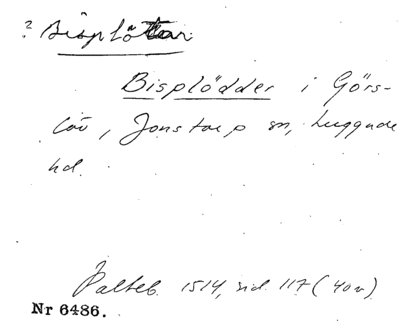 ? Bisplöttar
Bisplödder i Görs-
löv, Jonstorp sn, Luggude
hd.
Palteb. 1514, sid. 117 (40v)
Nr 6486.